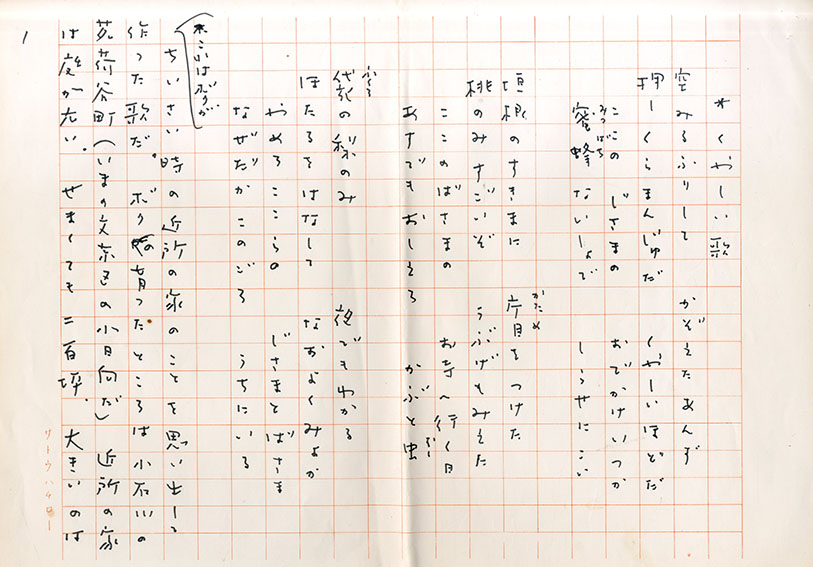 *くやしい歌
空みるふりして　かぞえたあんず
押しくらまんじゅだ　くやしいほどだ
ここの じさまの　おでかけいつか
みつばち
蜜蜂 ないしょで　しらせにこい
垣根のすきまに　片目をつけた
かため
桃のみすごいぞ　うぶげもみえた
ここのばさまの　お寺へ行く日
あすでもおしえろ　かぶと虫
袋の梨のみ　夜でもわかる
ほたるをはなして　なおよくみよか
やめろここらの　じさまとばさま
なぜだかこのごろ　うちにいる
これはボクが
ちいさい時の近所の家のことを思い出して
作った歌だ。ボクの育ったところは小石川の
茗荷谷町(いまの文京区の小日向だ)近所の家
は庭が広い。せまくても二百坪。大きいのは
1
サトウハチロー